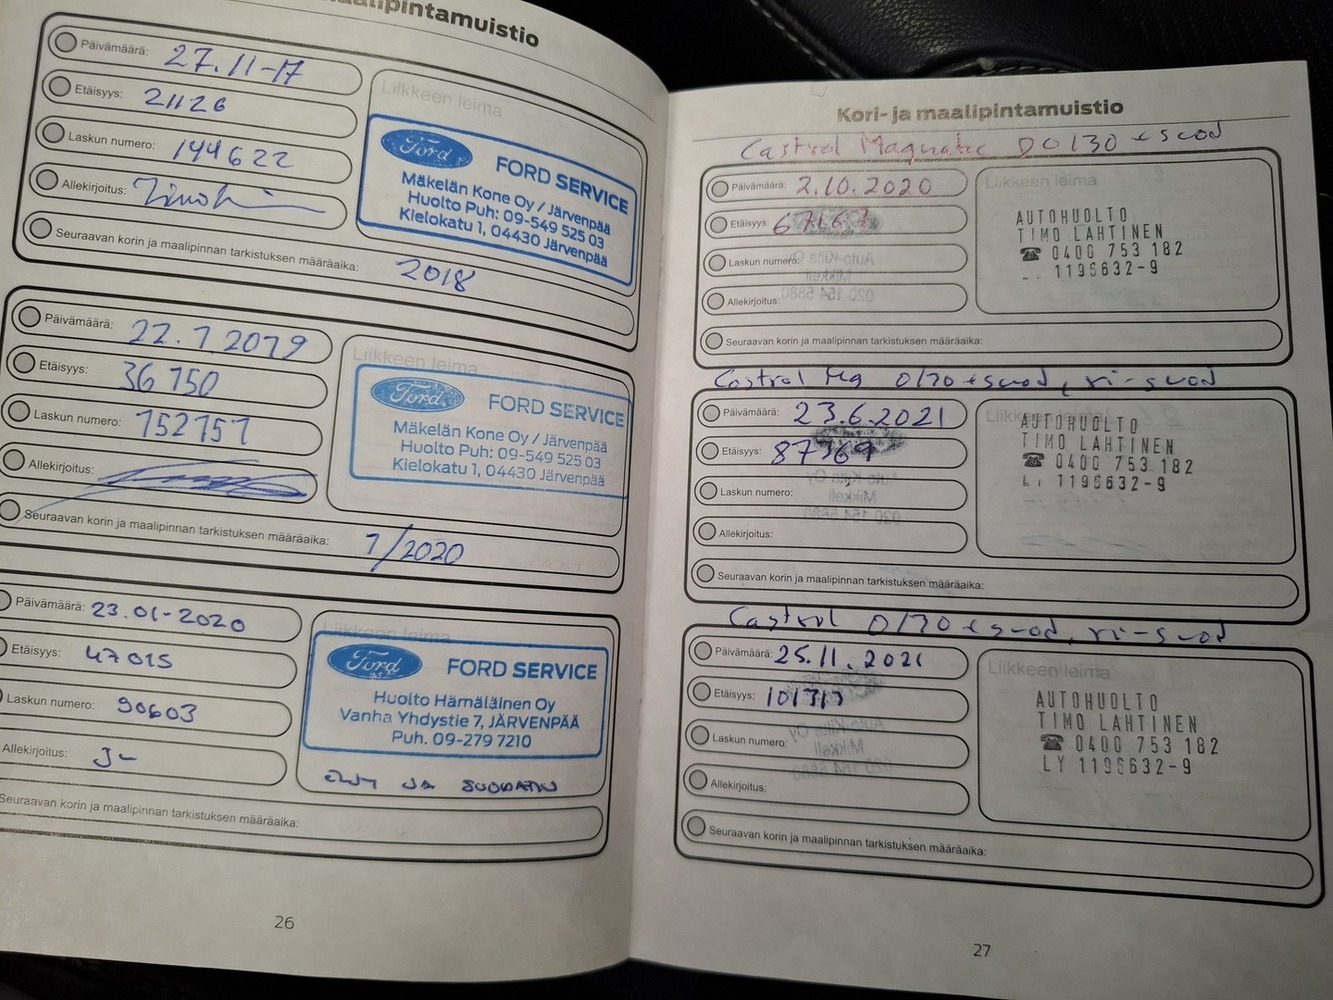 maalipintamuistio
Päivämäärä: 27.11-17
Etäisyys: 21126
Laskun numero: 144622
Allekirjoitus:
Liikkeen leima
Ford FORD SERVICE
Mäkelän Kone Oy / Järvenpää
Huolto Puh: 09-549 525 03
Kielokatu 1, 04430 Järvenpää
Seuraavan korin ja maalipinnan tarkistuksen määräaika: 2018
Päivämäärä: 22.1.2019
Etäisyys: 36 150
Laskun numero: 152151
Allekirjoitus:
Liikkeen leima
Ford FORD SERVICE
Mäkelän Kone Oy / Järvenpää
Huolto Puh: 09-549 525 03
Kielokatu 1, 04430 Järvenpää
Seuraavan korin ja maalipinnan tarkistuksen määräaika: 1/2020
Päivämäärä: 23.01-2020
Etäisyys: 47015
Laskun numero: 90603
Allekirjoitus:
Liikkeen leima
Ford FORD SERVICE
Huolto Hämäläinen Oy
Vanha Yhdystie 7, JÄRVENPÄÄ
Puh. 09-279 7210
ÖLJY JA SUODATIN
Seuraavan korin ja maalipinnan tarkistuksen määräaika:
26
Kori- ja maalipintamuistio
Castrol Magnatec D 0/30 + suod
Päivämäärä: 2.10.2020
Etäisyys: 67167
Laskun numero:
Allekirjoitus:
Liikkeen leima
AUTOHUOLTO
TIMO LAHTINEN
☎ 0400 753 182
1196632-9
Seuraavan korin ja maalipinnan tarkistuksen määräaika:
Castrol Mg 0/30 + suod, ri-suod
Päivämäärä: 23.6.2021
Etäisyys: 87369
Laskun numero:
Allekirjoitus:
Liikkeen leima
AUTOHUOLTO
TIMO LAHTINEN
☎ 0400 753 182
1196632-9
Seuraavan korin ja maalipinnan tarkistuksen määräaika:
Castrol 0/30 + suod, ri-suod
Päivämäärä: 25.11.2021
Etäisyys:
Laskun numero:
Allekirjoitus:
Liikkeen leima
AUTOHUOLTO
TIMO LAHTINEN
☎ 0400 753 182
LY 1196632-9
Seuraavan korin ja maalipinnan tarkistuksen määräaika:
27